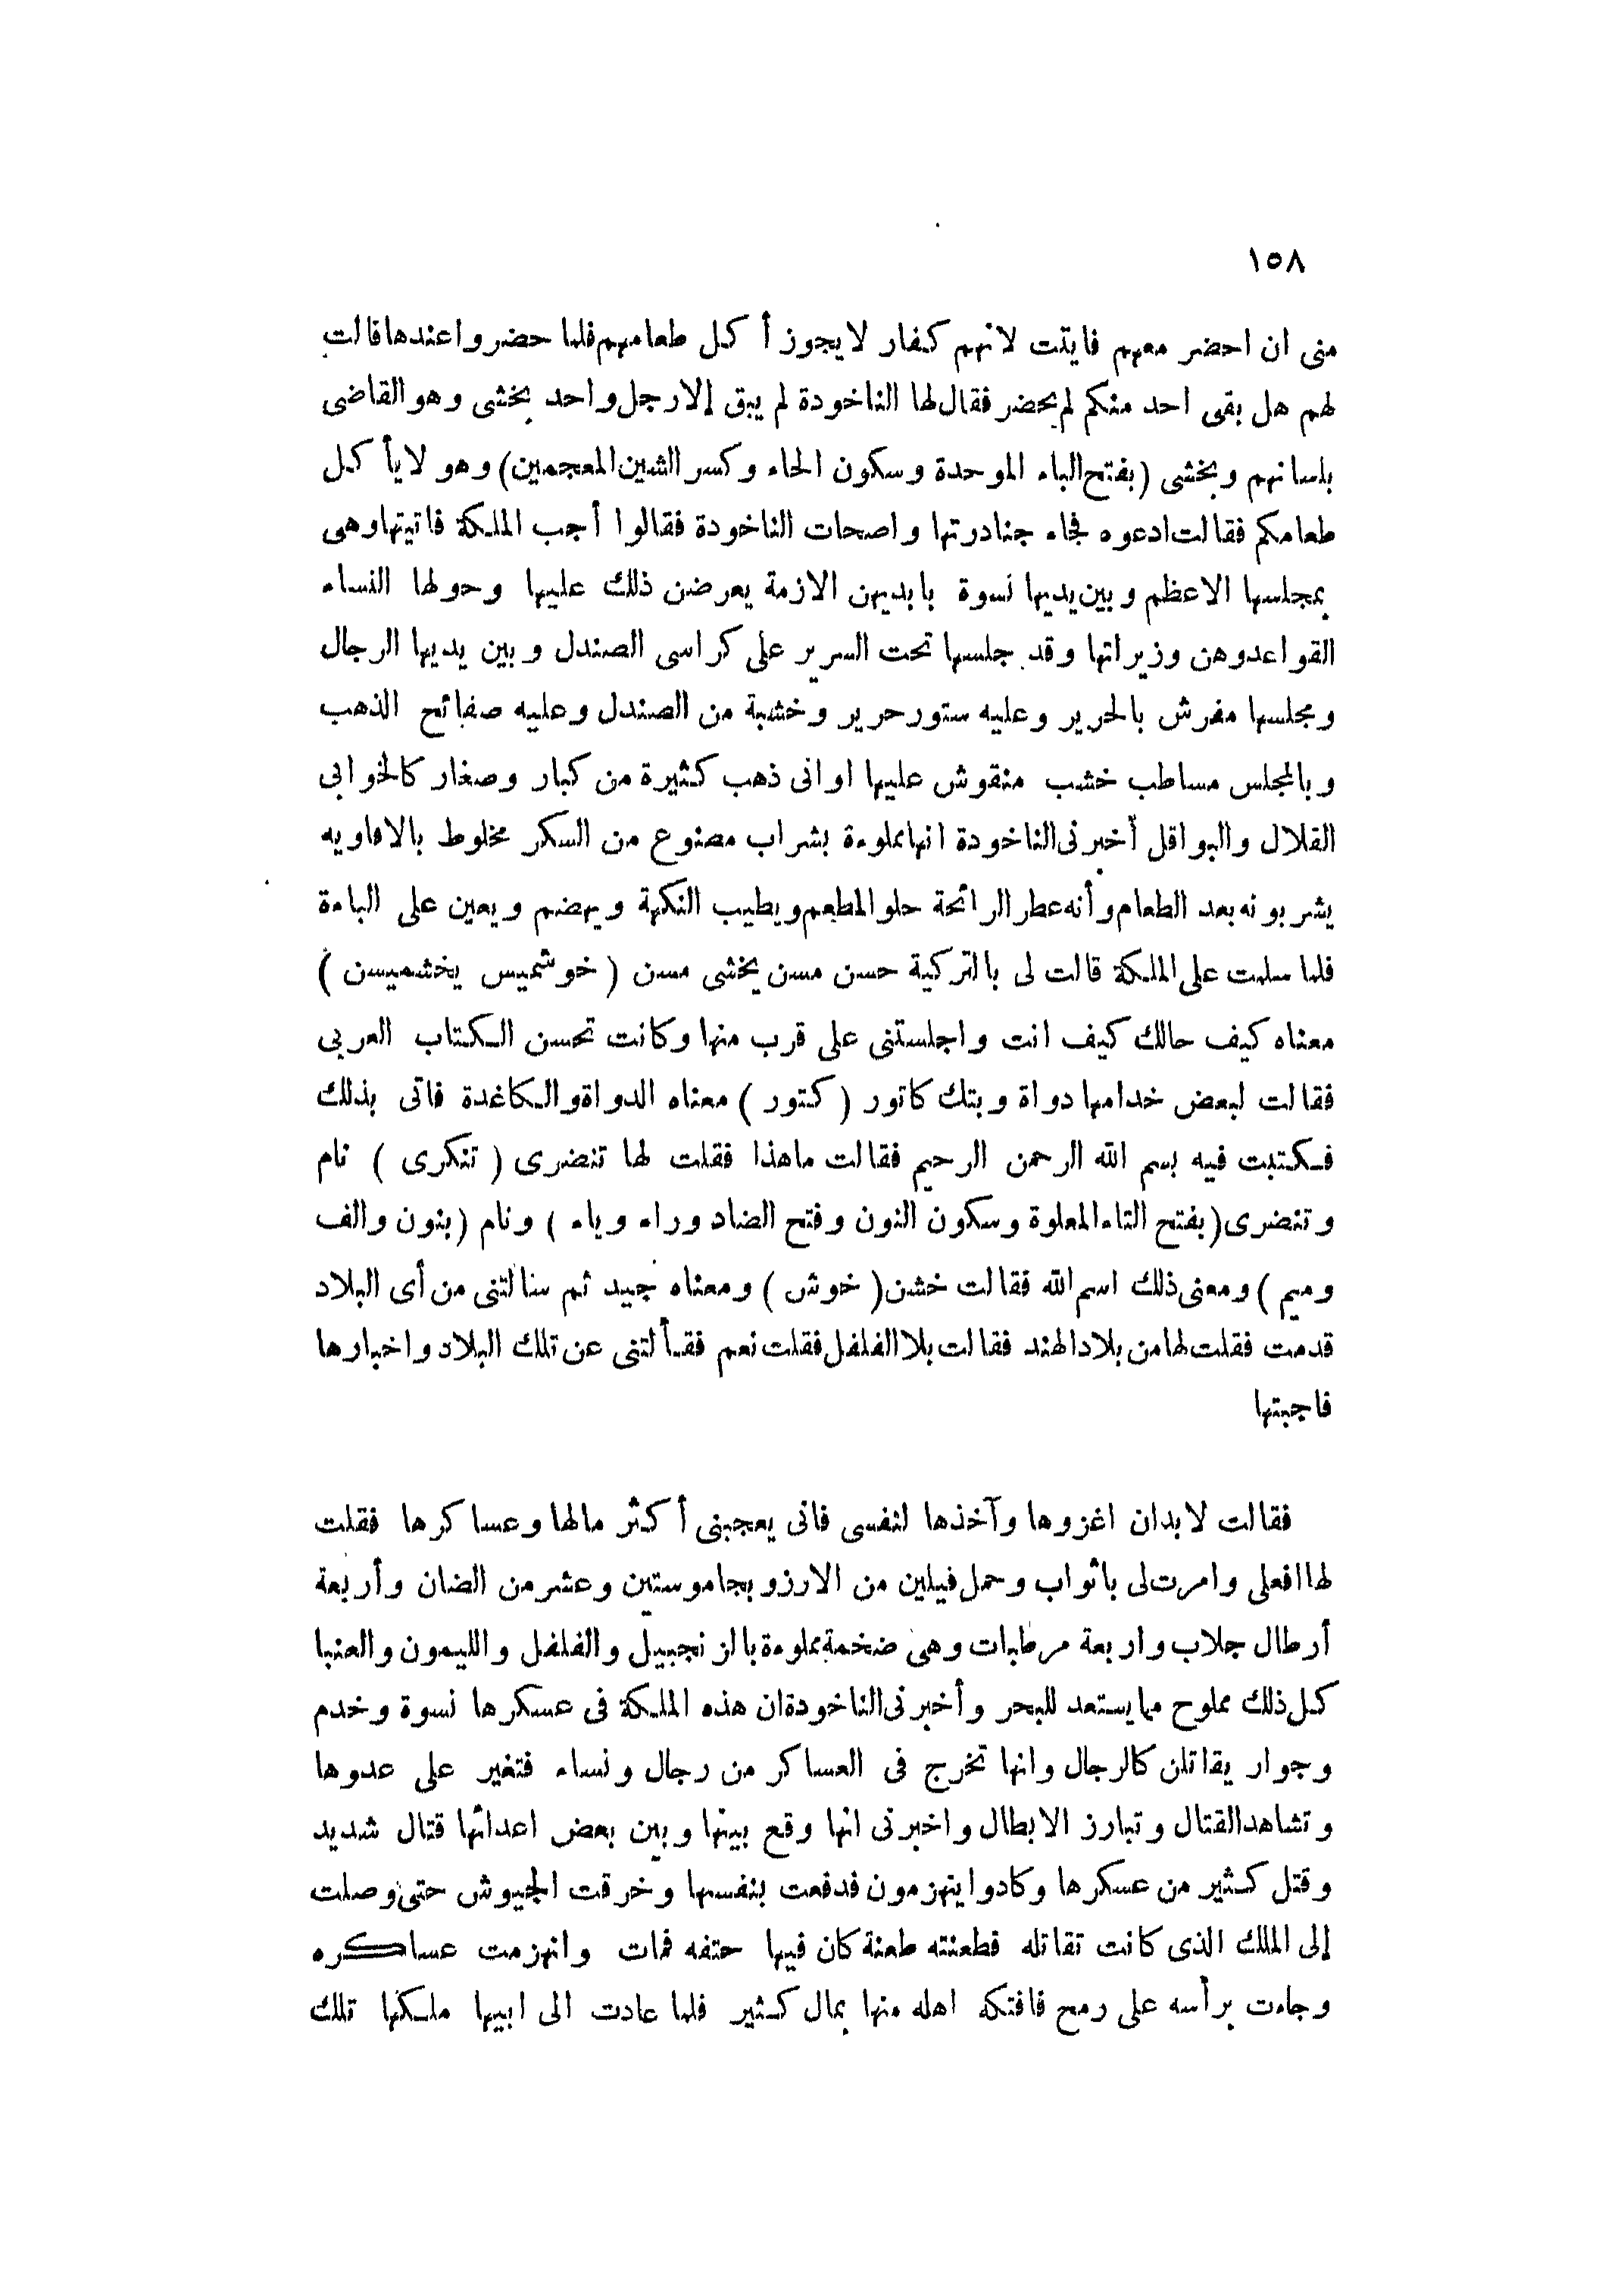 ١٥٨
منى ان احضر معهم فايتت لانهم كفار لايجوز أ كل طعامهم فلما حضروا عندها قالت
لهم هل بقى احد منكم لم يحضر فقال لها الناخودة لم يبق إلا رجل واحد بخشى وهو القاضى
بلسانهم وبخشى (بفتح الباء الموحدة وسكون الخاء وكسر الشين المعجمين) وهو لايأ كل
طعامكم فقالت ادعوه فجاء جنادرتها واصحات الناخودة فقالوا أجب الملكة فاتيتها وهى
بمجلسها الاعظم وبين يديها نسوة بايديهن الازمة يعرضن ذلك عليها وحولها النساء
القواعد وهن وزيراتها وقد جلسها تحت السرير على كراسى الصندل وبين يديها الرجال
ومجلسها مفرش بالحرير وعليه ستور حرير وخشبة من الصندل وعليه صفائح الذهب
وبالمجلس مساطب خشب منقوش عليها اوانى ذهب كثيرة من كبار وصغار كالخوابى
القلال والبواقل أخبرنى الناخودة انها مملوءة بشراب مصنوع من السكر مخلوط بالافاويه
يشربونه بعد الطعام وأنه عطر الرائحة حلو المطعم ويطيب النكهة ويهضم ويعين على الباءة
فلما سلمت على الملكة قالت لى بالتركية حسن مسن يخشى مسن ( خوشميس يخشميسن )
معناه كيف حالك كيف انت واجلستنى على قرب منها وكانت تحسن الكتاب العربى
فقالت لبعض خدامها دواة وبتك كاتور ( كتور ) معناه الدواة والكاغدة فاتى بذلك
فكتبت فيه بسم الله الرحمن الرحيم فقالت ماهذا فقلت لها تنضرى ( تنكرى ) نام
وتنضرى (بفتح التاء المعلوة وسكون النون وفتح الضاد وراء وياء ) ونام (بنون والف
وميم ) ومعنى ذلك اسم الله فقالت خشن ( خوش ) ومعناه جيد ثم سنالتنى من أى البلاد
قدمت فقلت لها من بلاد الهند فقالت بلاا الفلفل فقلت نعم فقـألتنى عن تلك البلاد واخبارها
فاجبتها
فقالت لابد ان اغزوها وآخذها لنفسى فانى يعجبنى أ كثر مالها وعسا كرها فقلت
لها افعلى وامرت لى باثواب وحمل فيلين من الارز وبجاموستين وعشر من الضان وأربعة
أرطال جلاب واربعة مرطبات وهى ضخمة مملوءة بالزنجبيل والفلفل والليمون والعنبا
كل ذلك مملوح مما يستعد للبحر وأخبرنى الناخودة ان هذه الملكة فى عسكرها نسوة وخدم
وجوار يقاتلن كالرجال وانها تخرج فى العساكر من رجال ونساء فتغير على عدوها
وتشاهد القتال وتبارز الابطال واخبرنى انها وقع بينها وبين بعض اعدائها قتال شديد
وقتل كثير من عسكرها وكادوا ينهزمون فدفعت بنفسها وخرقت الجيوش حتى وصلت
إلى الملك الذى كانت تقاتله فطعنته طعنة كان فيها حتفه فمات وانهزمت عساكره
وجاءت برأسه على رمح فافتكه اهله منها بمال كثير فلما عادت الى ابيها ملكها تلك